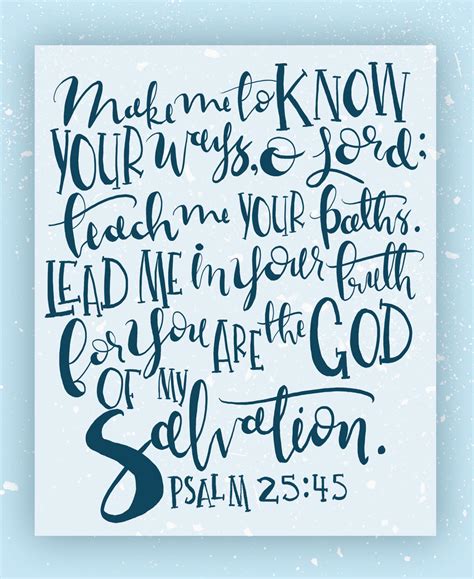 Make me to KNOW
YOUR ways, O Lord;
teach me YOUR paths.
LEAD ME in your truth
for you ARE the GOD
OF MY
Salvation.
PSALM 25:45